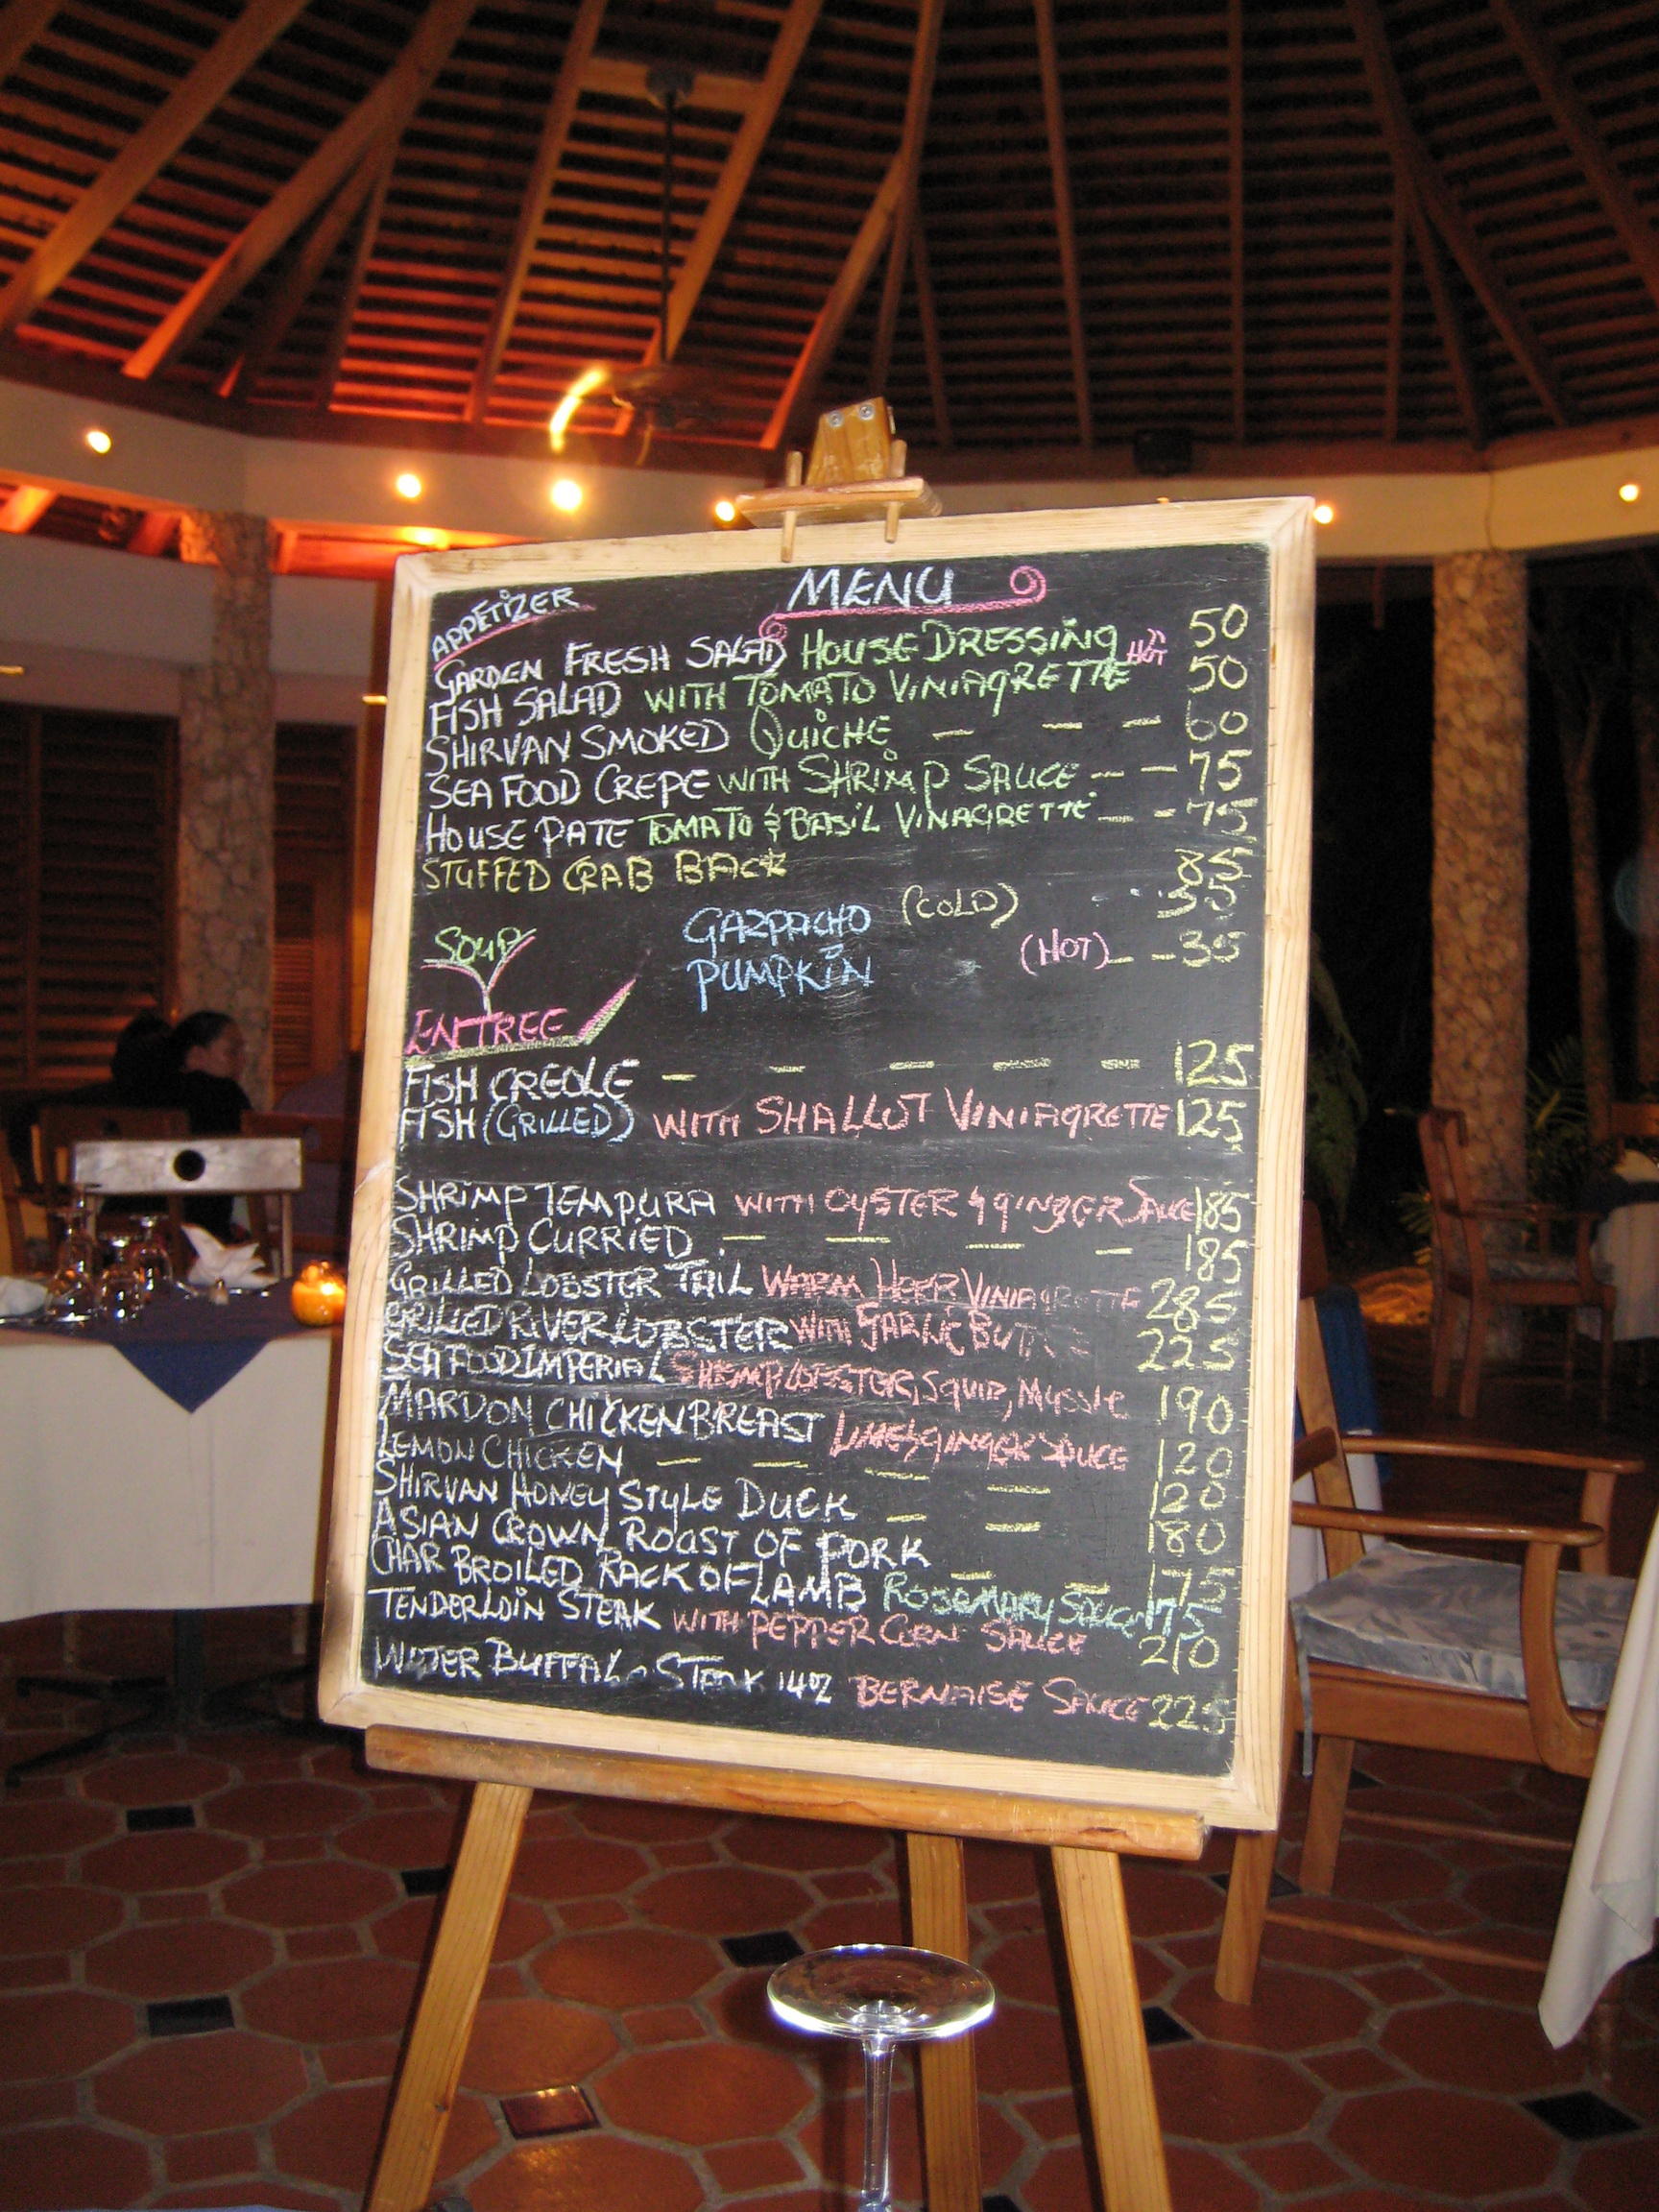 MENU
APPETIZER
GARDEN FRESH SALAD HOUSE DRESSING 50
FISH SALAD WITH TOMATO VINIAGRETTE HOT 50
SHIRVAN SMOKED QUICHE - - - 60
SEAFOOD CREPE WITH SHRIMP SAUCE - - 75
HOUSE PATE TOMATO & BASIL VINAGRETTE - - 75
STUFFED CRAB BACK 85
SOUP GAZPACHO (COLD) 35
PUMPKIN (HOT) - - 35
ENTREE
FISH CREOLE - - - - - 125
FISH (GRILLED) WITH SHALLOT VINIAGRETTE 125
SHRIMP TEMPURA WITH OYSTER & GINGER SAUCE 185
SHRIMP CURRIED - - - - 185
GRILLED LOBSTER TAIL WARM HERB VINIAGRETTE 285
GRILLED RIVER LOBSTER WITH GARLIC 225
SEAFOOD IMPERIAL SHRIMP, LOBSTER, SQUID, MUSSLE 190
MARDON CHICKEN BREAST LIME & GINGER SAUCE 120
LEMON CHICKEN - - - - 120
SHIRVAN HONEY STYLE DUCK - - 180
ASIAN CROWN ROAST OF PORK - - 175
CHAR BROILED RACK OF LAMB ROSEMARY SAUCE 175
TENDERLOIN STEAK WITH PEPPER CORN SAUCE 210
WATER BUFFALO STEAK 14OZ BERNAISE SAUCE 225